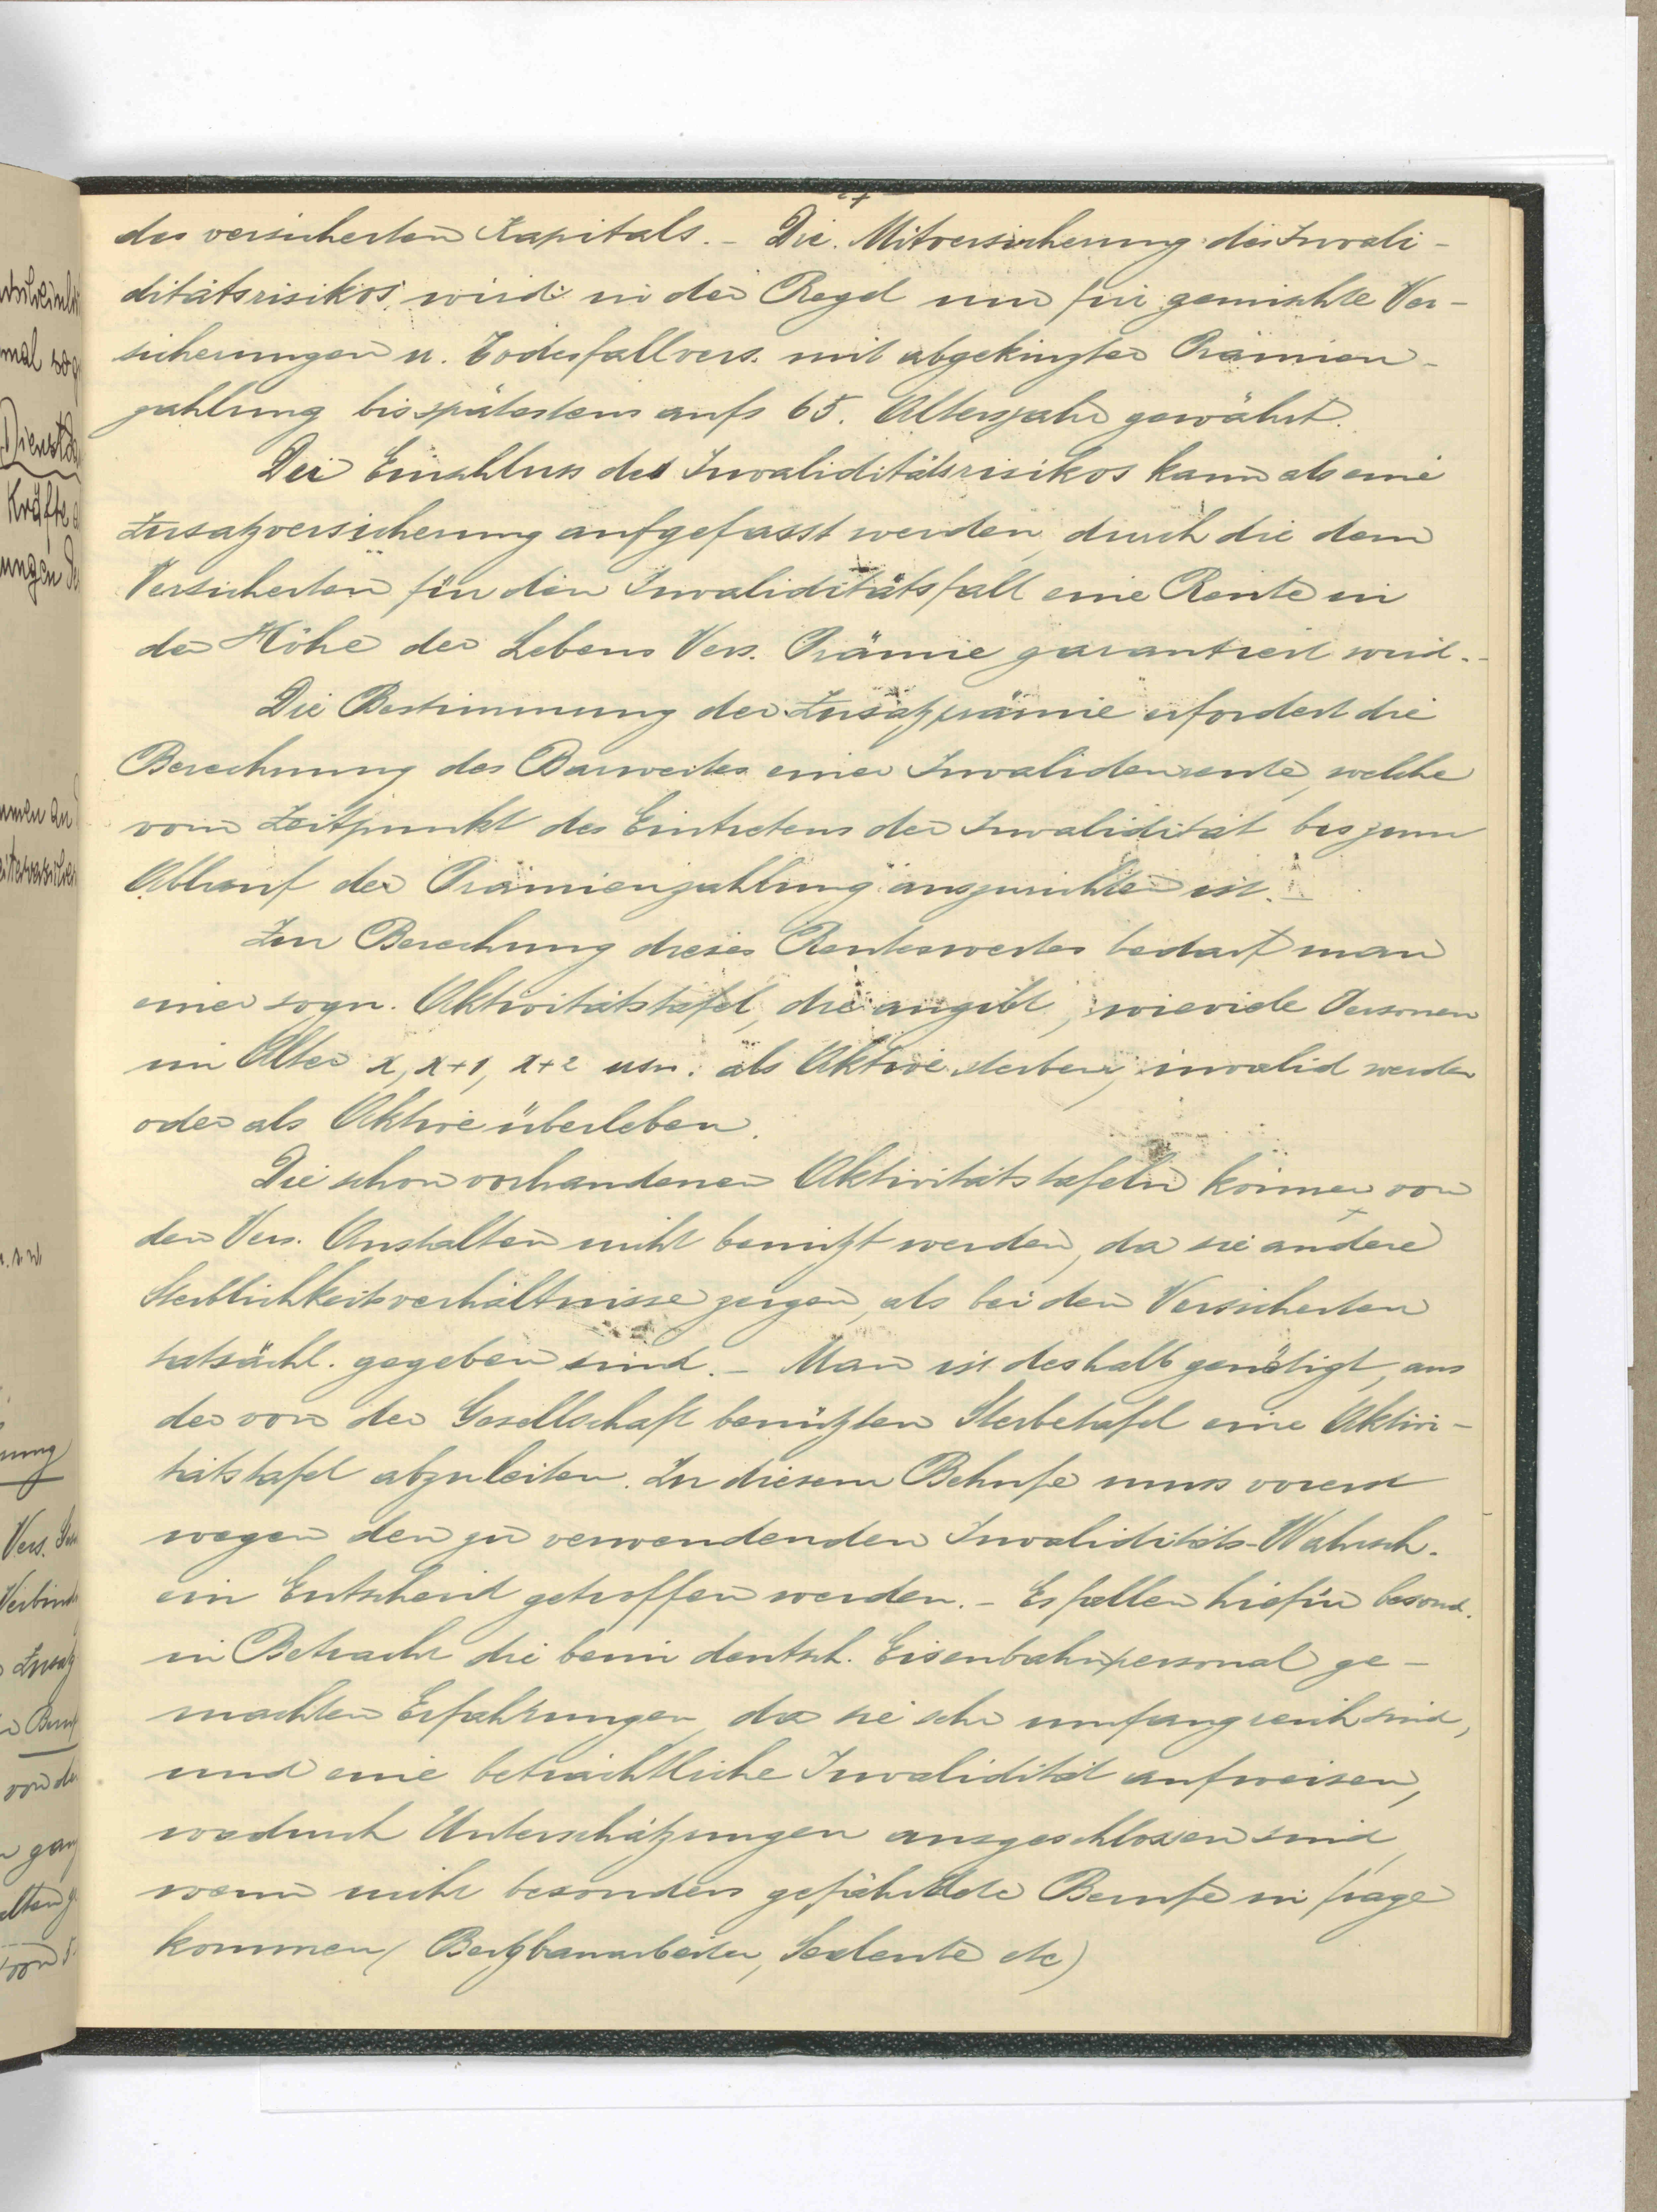 des versicherten Kapitals. – Die Mitversicherung des Invali-
ditätsrisikos wird in der Regel nur für gemischte Ver-
sicherungen u. Todesfallvers. mit abgekürzter Prämien-
zahlung bis spätestens aufs 65. Altersjahr gewährt.
Der Einschluss des Invaliditätsrisikos kann als eine
Zusatzversicherung aufgefasst werden, durch die dem
Versicherten für den Invaliditätsfall eine Rente in
der Höhe der Lebens Vers. Prämie garantiert wird. –
Die Bestimmung der Zusatzprämie erfordert die
Berechnung des Barwertes einer Invalidenrente, welche
vom Zeitpunkt des Eintretens der Invalidität bis zum
Ablauf der Prämienzahlung auszurichten ist.
Zur Berechung dieses Rentewertes bedarf man
einer sogn. Aktivitätstafel, die angibt, wieviele Personen
im Alter x, x+1, x+2 usw. als Aktive sterben, invalid werden
oder als Aktive überleben.
Die schon vorhandenen Aktivitätstafeln können von
den Vers. Anstalten nicht benützt werden, da sie andere
Sterblichkeitsverhältnisse zeigen, als bei den Versicherten
tatsächl. gegeben sind. – Man ist deshalb genötigt, aus
der von der Gesellschaft benützten Sterbetafel eine Aktivi-
tätstafel abzuleiten. Zu diesem Behufe muss vorerst
wegen den zu verwendenden Invaliditäts-Wahrsch.
ein Entscheid getroffen werden. – Es fallen hiefür besond.
in Betracht die beim deutsch. Eisenbahnpersonal ge-
machten Erfahrungen, da sie sehr umfangreich sind,
und eine beträchtliche Invalidität aufweisen,
wodurch Unterschätzungen ausgeschlossen sind,
wenn nicht besonders gefährdete Berufe in frage
kommen (Bergbauarbeiter, Seeleute etc)